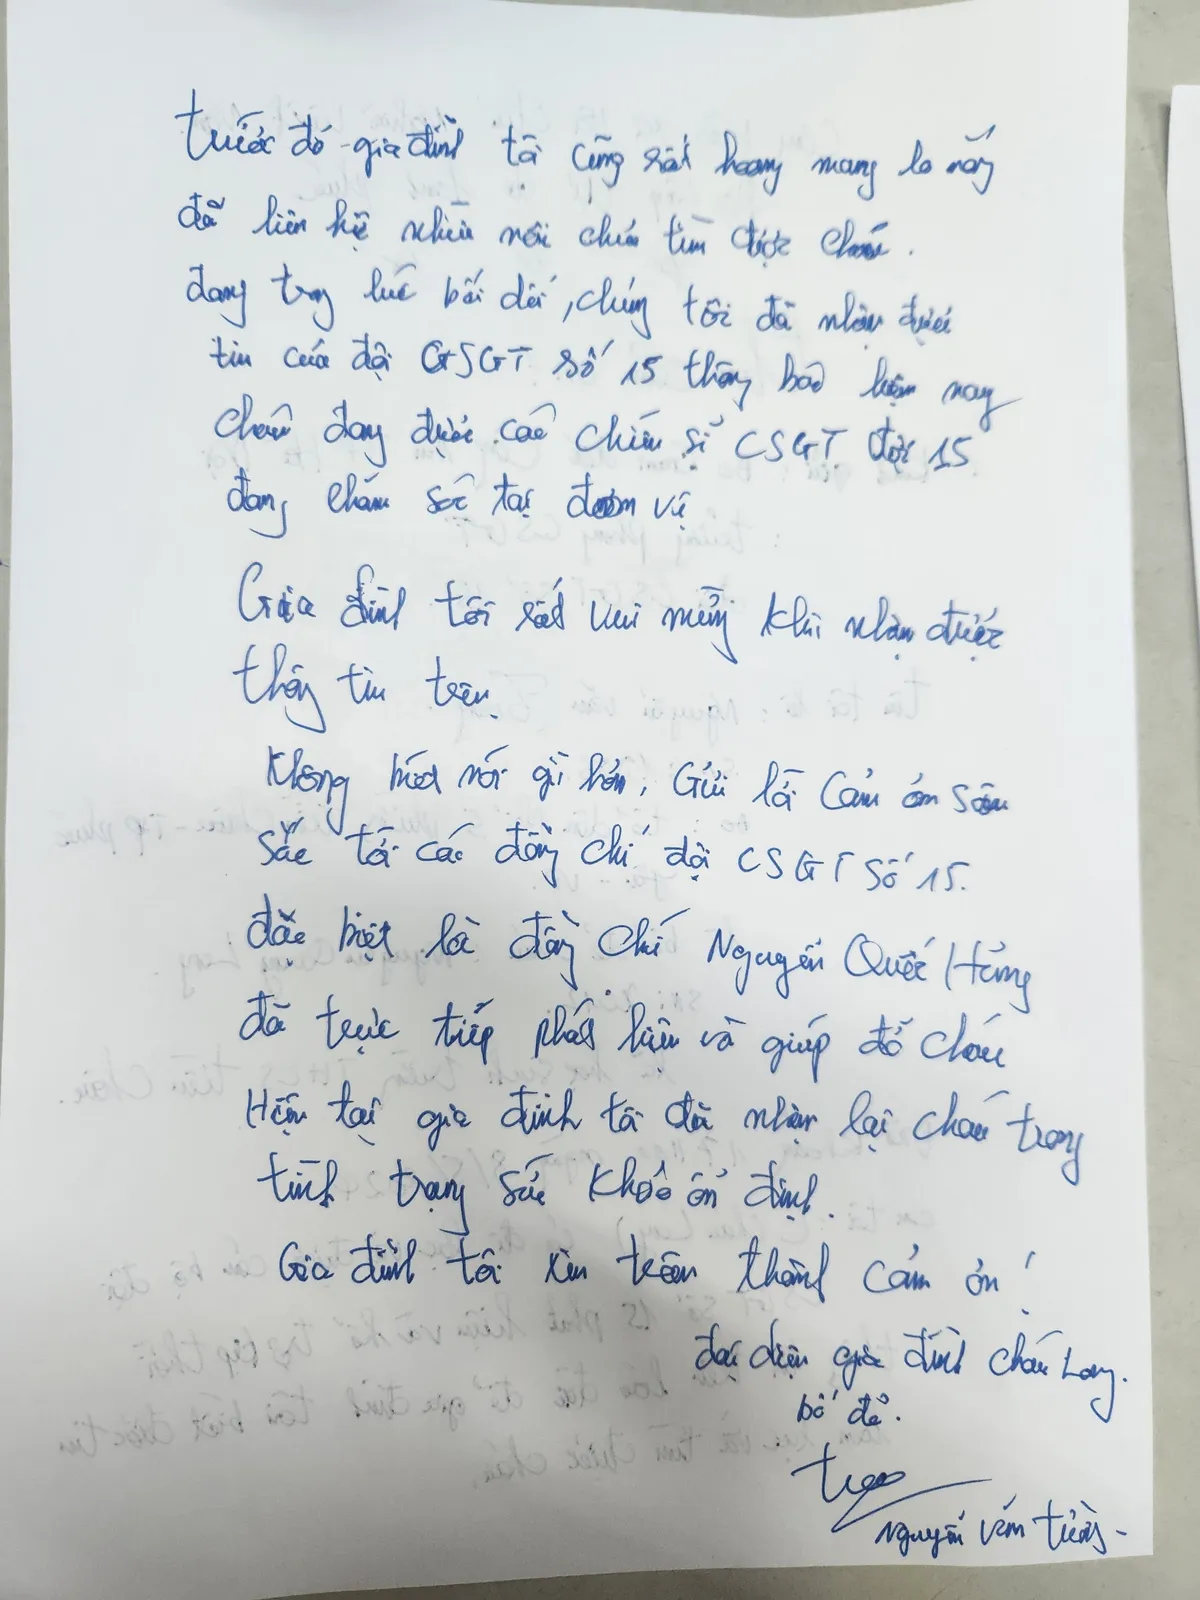 Trước đó gia đình tôi cũng rất hoang mang lo nắng
đã liên hệ nhiều nơi chưa tìm được cháu.
đang trong lúc bối dối, chúng tôi đã nhận được
tin của đội CSGT số 15 thông báo hiện nay
cháu đang được các chiến sĩ CSGT đội 15
đang chăm sóc tại đơn vị
Gia đình tôi rất vui mừng khi nhận được
thông tin trên.
Không biết nói gì hơn, Gửi lời cảm ơn sâu
sắc tới các đồng chí đội CSGT số 15.
đặc biệt là đồng chí Nguyễn Quốc Hùng
đã trực tiếp phát hiện và giúp đỡ cháu
Hiện tại gia đình tôi đã nhận lại cháu trong
tình trạng sức khoẻ ổn định.
Gia đình tôi xin trân thành cảm ơn!
đại diện gia đình cháu Long.
bố đẻ.
Nguyễn Văn